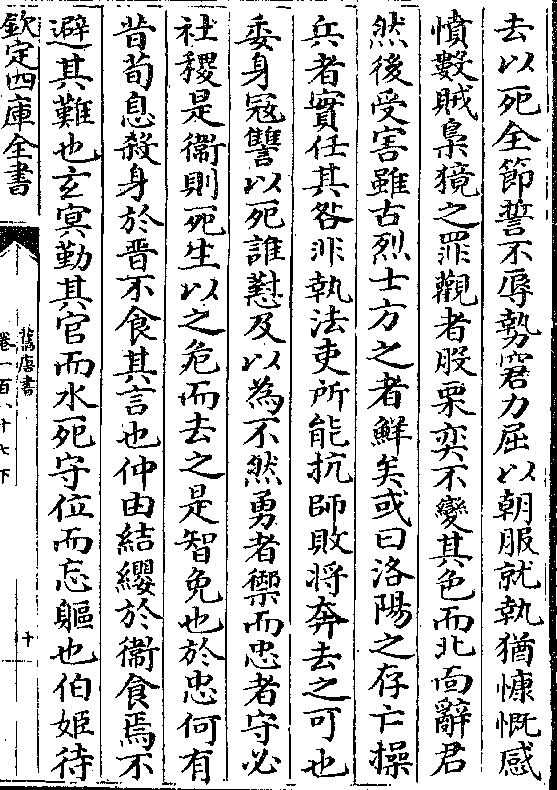 去以死全節誓不辱勢窘力屈以朝服就執猶慷慨感
憤數賊梟獍之罪觀者股栗奕不變其色而北面辭君
然後受害雖古烈士方之者鮮矣或曰洛陽之存亡操
兵者實任其咎非執法吏所能抗師敗將奔去之可也
委身冦讐以死誰懟及以為不然勇者禦而忠者守必
社稷是衞則死生以之危而去之是智免也於忠何有
昔荀息殺身於晋不食其言也仲由結纓於衞食焉不
避其難也玄冥勤其官而水死守位而忘軀也伯姬待
欽定四庫全書
舊唐書
卷一百八十七下
十